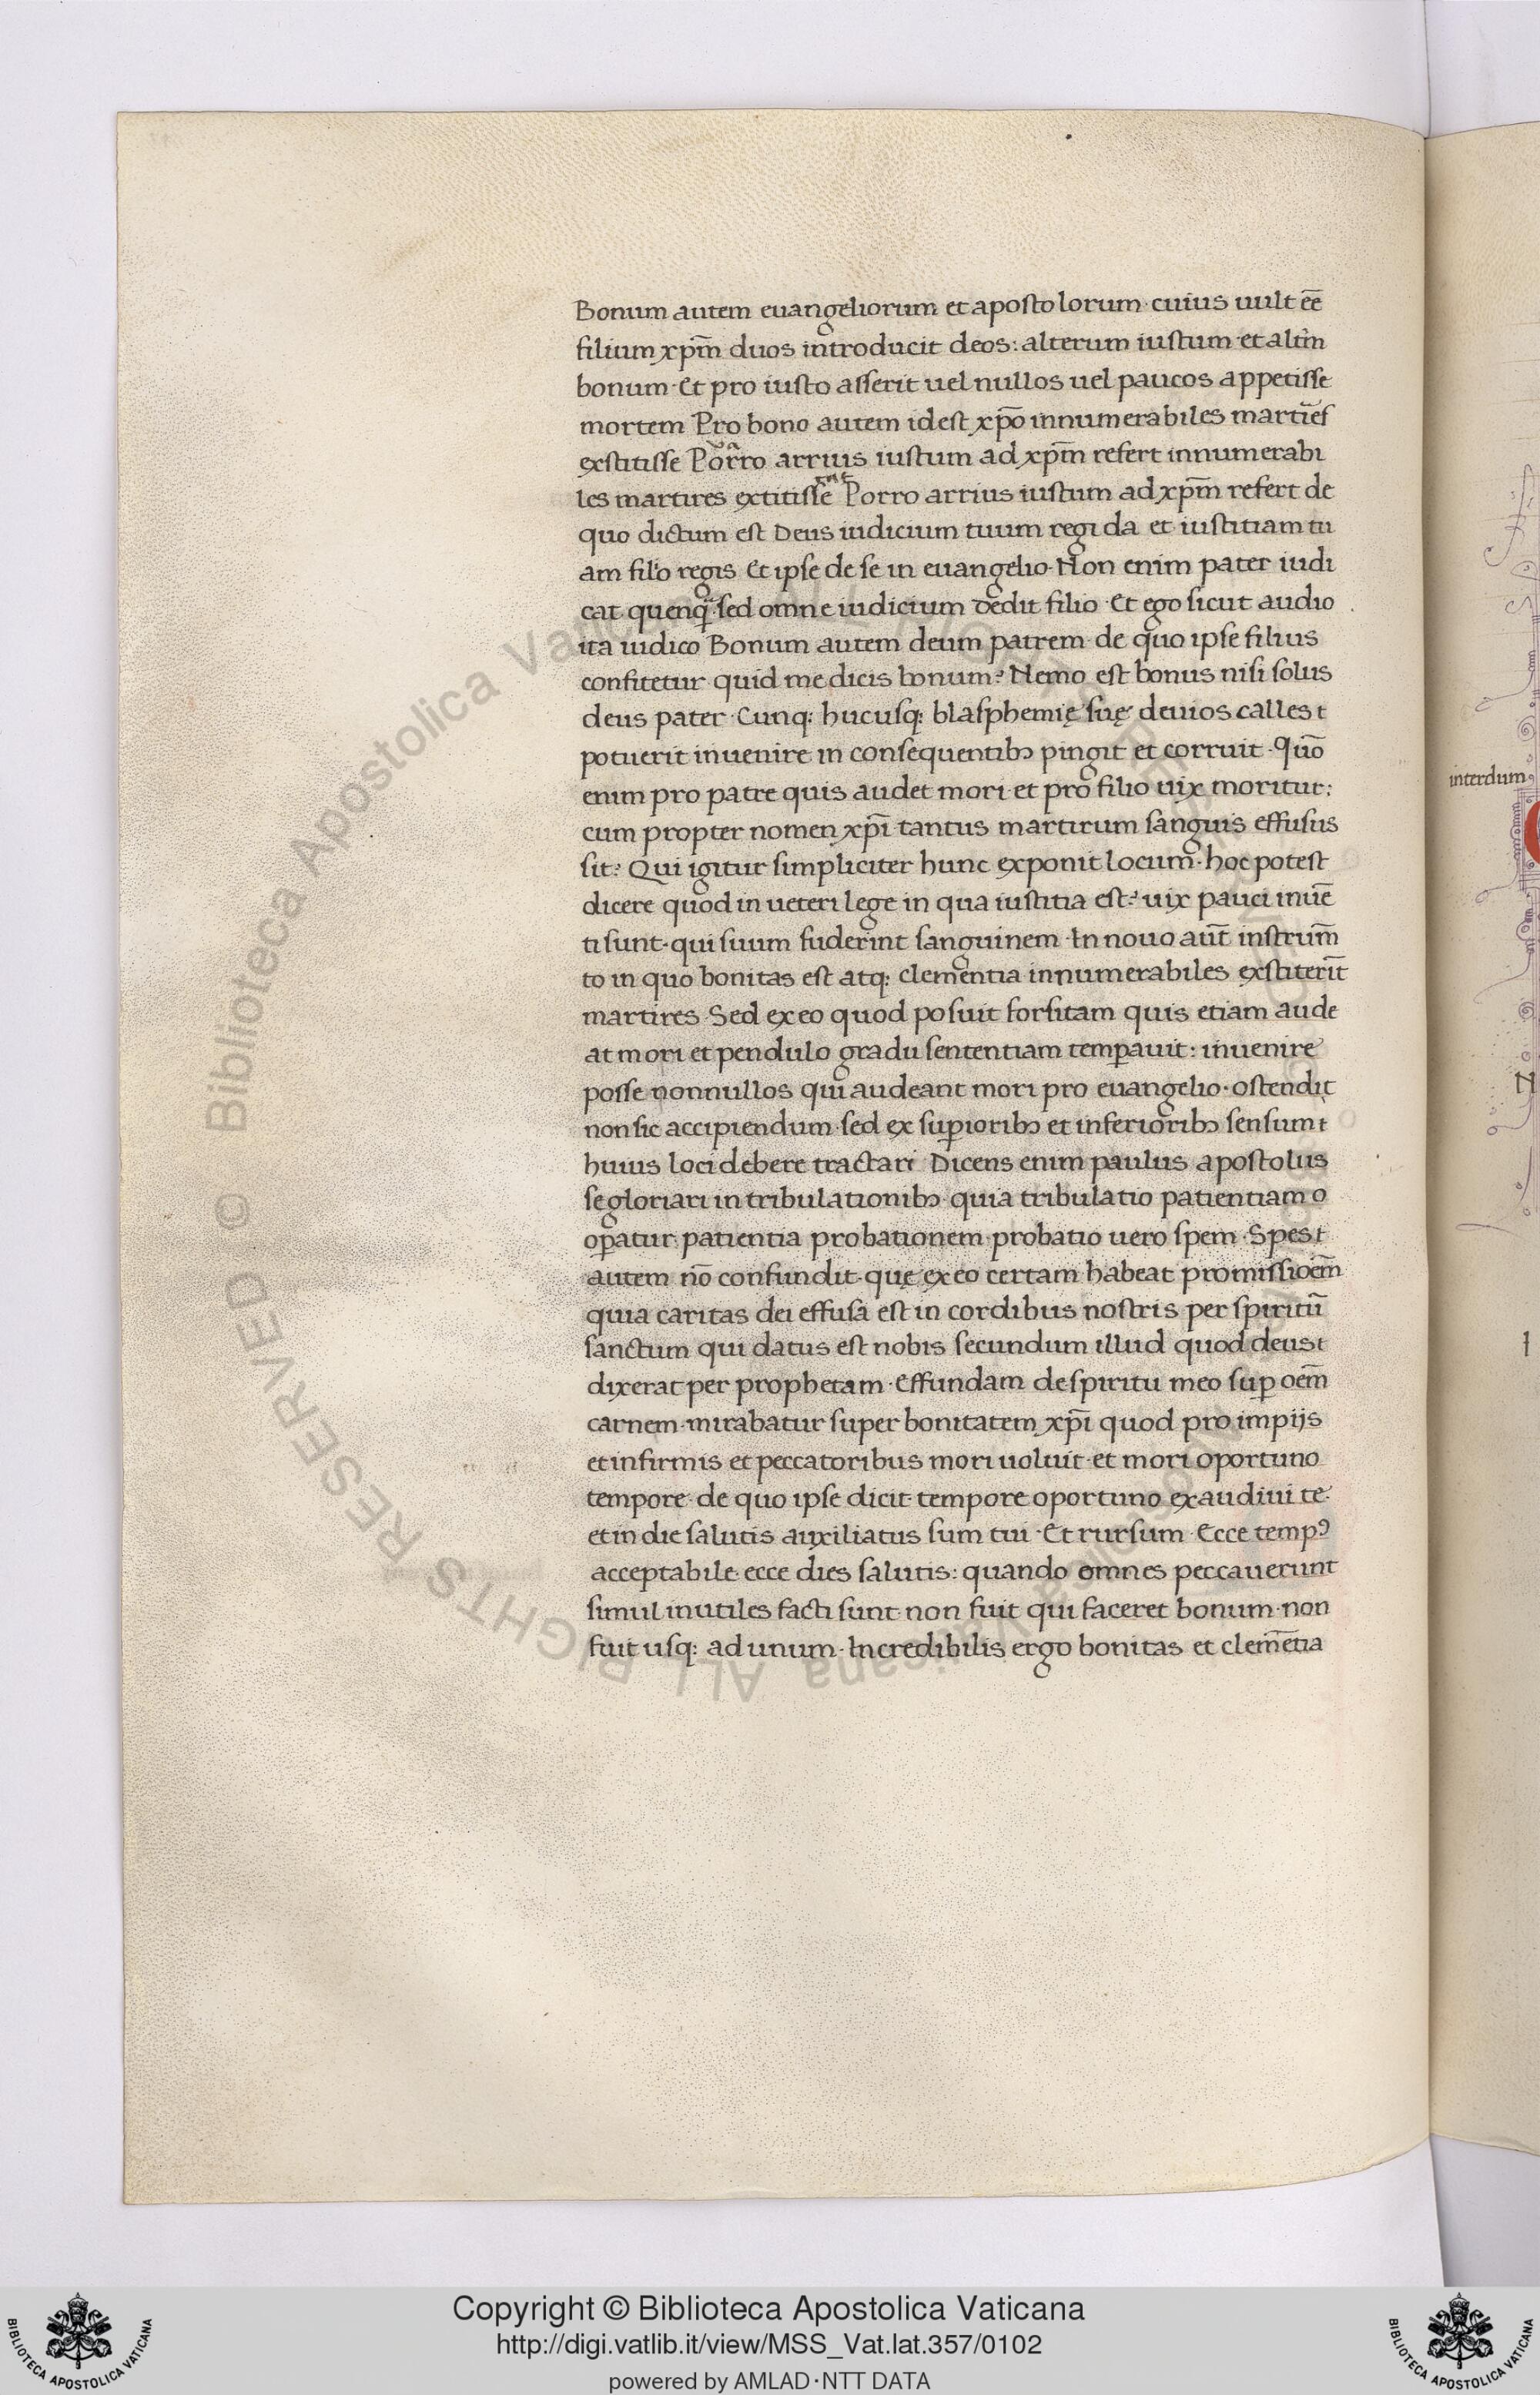 Bonum autem euangeliorum et apostolorum · cuius uult eē
filium xp̄m duos introducit deos: alterum iustum · et alt̄m
bonum · Et pro iusto asserit uel nullos uel paucos appetisse
mortem Pro bono autem idest xp̄o innumerabiles marti͞es
exstitisse Porro arrius iustum ad xp̄m refert innumerabi
les martires extitisse Porro arrius iustum ad xp̄m refert de
quo dictum est Deus iudicium tuum regi da et iustitiam tu
am filio regis Et ipse de se in euangelio · Non enim pater iudi
cat quenq̄ · sed omne iudicium dedit filio · Et ego sicut audio
ita iudico Bonum autem deum patrem · de quo ipse filius
confitetur · quid me dicis bonum? Nemo est bonus nisi solus
deus pater · Cunq: hucusq: blasphemię suę deuios calles t
potuerit inuenire in consequentibꝰ pingit et corruit · Quō
enim pro patre quis audet mori et pro filio uix moritur:
cum propter nomen xp̄i tantus martirum sanguis effusus
sit? Qui igitur simpliciter hunc exponit locum · hoc potest
dicere quod in ueteri lege in qua iustitia est? uix pauci inuē
ti sunt · qui suum fuderint sanguinem · In nouo aut̄ instrum̄
to in quo bonitas est atq: clementia innumerabiles exstiterīt
martires · Sed ex eo quod posuit forsitam quis etiam aude
at mori et pendulo gradu sententiam temꝑauit: inuenire
posse nonnullos qui audeant mori pro euangelio · ostendit
non sic accipiendum · sed ex suꝑioribꝰ et inferioribꝰ sensum t
huius loci debere tractari Dicens enim paulus apostolus
se gloriari in tribulationibꝰ · quia tribulatio patientiam o
oꝑatur · patientia probationem · probatio uero spem · Spes t
autem nō confundit · quę ex eo certam habeat promissioēm
quia caritas dei effusa est in cordibus nostris per spiritū
sanctum qui datus est nobis secundum illud quod deus t
dixerat per prophetam · Effundam de spiritu meo suꝑ oēm
carnem · mirabatur super bonitatem xp̄i quod pro impijs
et infirmis et peccatoribus mori uoluit · et mori oportuno
tempore · de quo ipse dicit · tempore oportuno exaudiui te
et in die salutis auxiliatus sum tui · Et rursum · Ecce tempꝰ
acceptabile · ecce dies salutis: quando omnes peccauerunt
simul inutiles facti sunt · non fuit qui faceret bonum · non
fuit usq: ad unum · Incredibilis ergo bonitas et clem̄etia
interdum
Copyright © Biblioteca Apostolica Vaticana
http://digi.vatlib.it/view/MSS_Vat.lat.357/0102
powered by AMLAD·NTT DATA